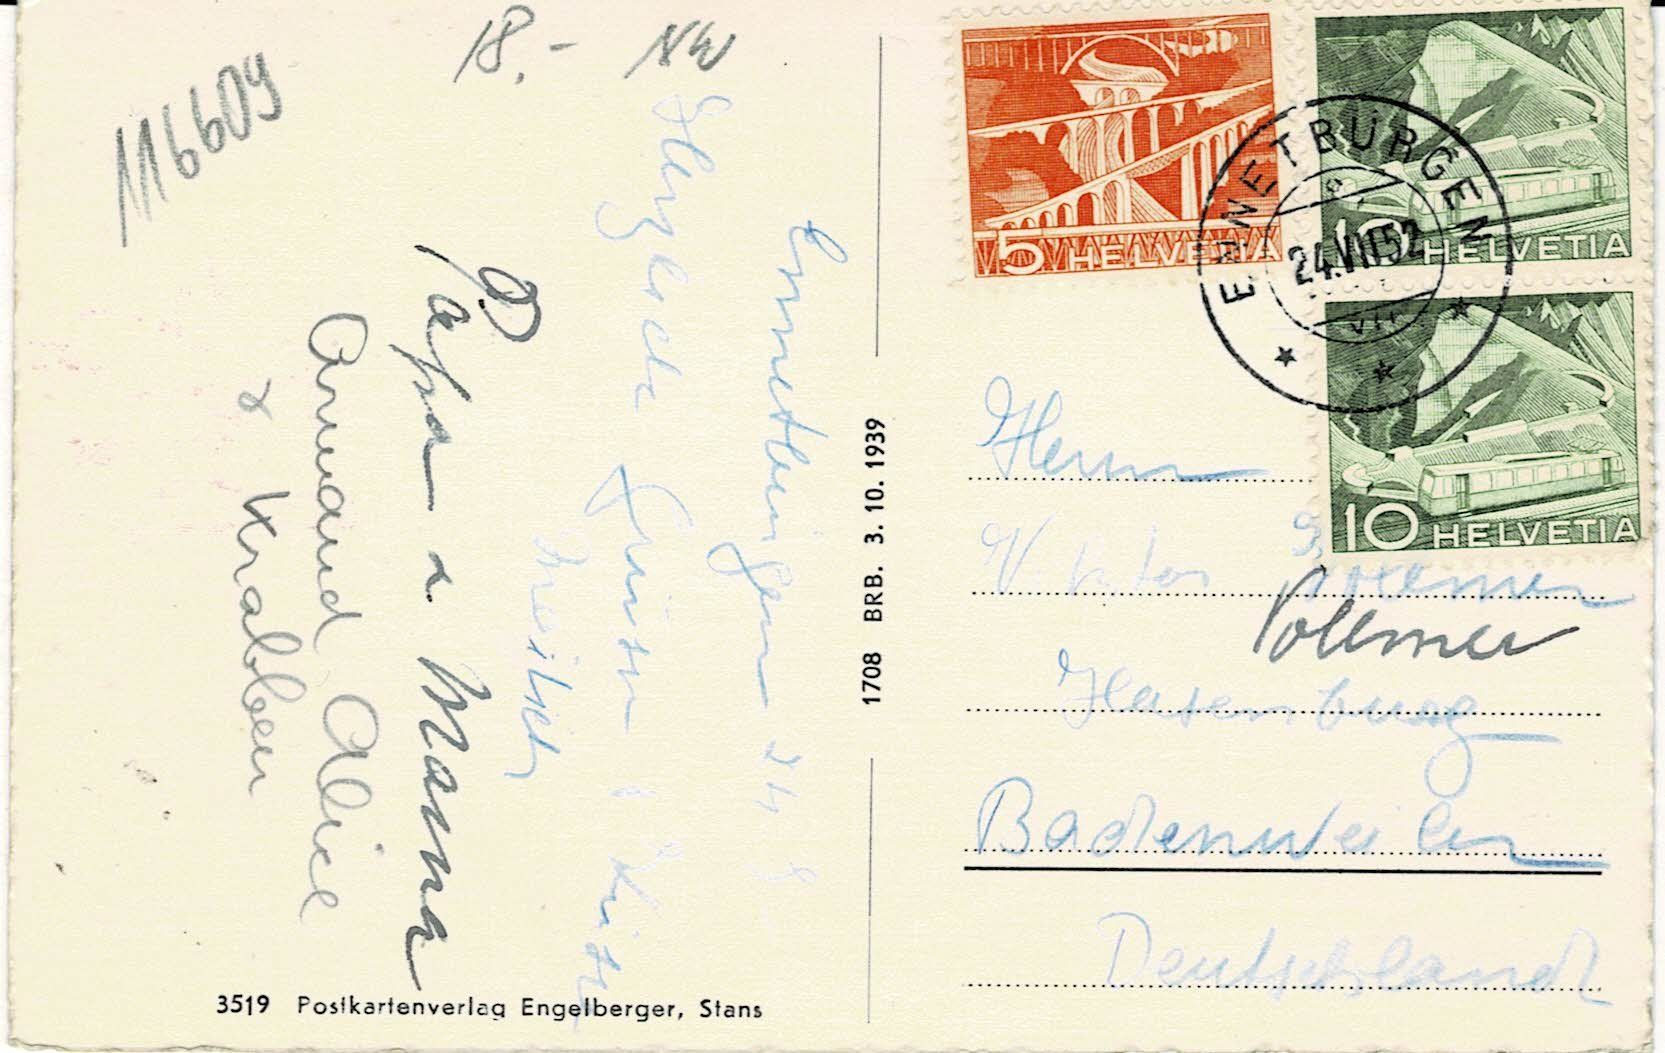 116609
18.-
NW
Ennetbürgen 24 8
Herzliche Grüsse
Papa u Mama
Armand Alice
& Krabben
3519 Postkartenverlag Engelberger, Stans
1708 BRB. 3. 10. 1939
5 HELVETIA
10 HELVETIA
10 HELVETIA
ENNETBÜRGEN
24.VIII 52
Herrn
Viktor Vollmer
Vollmer
Hasenburg
Badenweiler
Deutschland